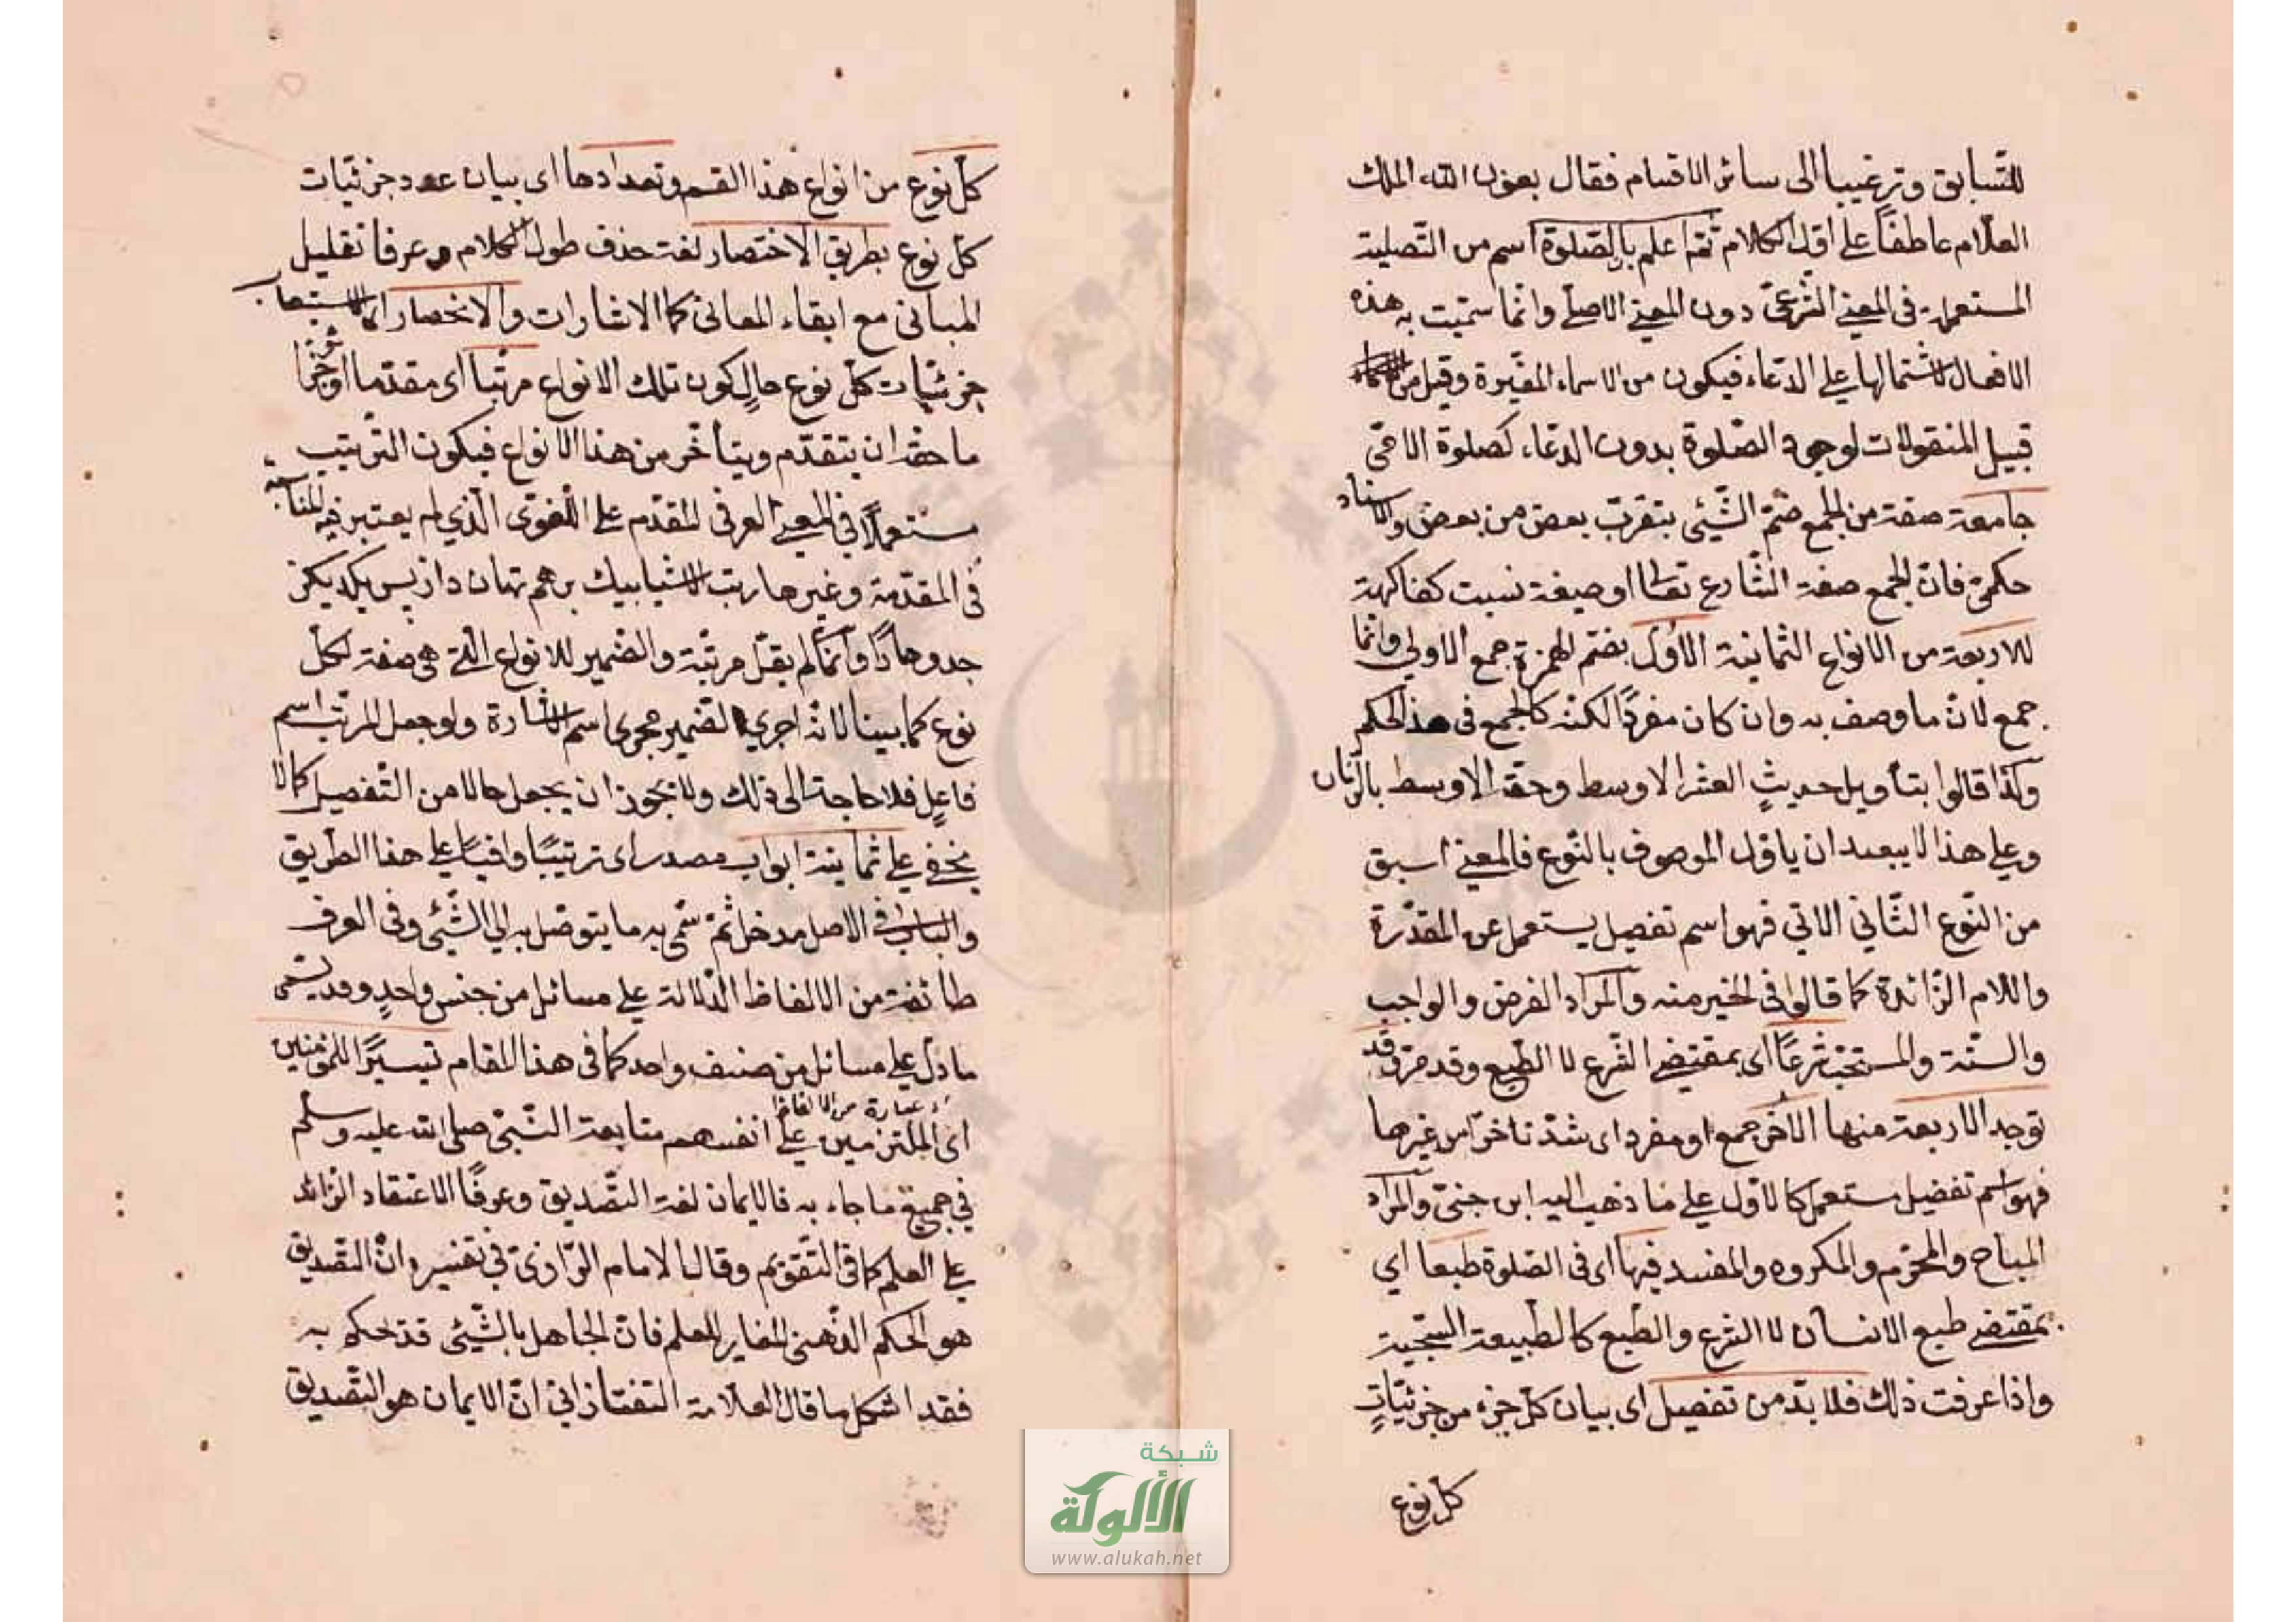 للتسابق وترغيبا الى سائر الاقسام فقال بعون الله الملك
العلّام عاطفًا على اقل الكلام ثمّ اعلم بالصّلوة اسم من التّصلية
المستعملة فى المعنى الشّرعىّ دون المعنى الاصلّى وانّما سمّيت به هذه
الافعال لاشتمالها على الدّعاء فيكون من الاسماء المغيّرة وقيل من
قبيل المنقولات لوجود الصّلوة بدون الدعّاء كصلوة الامّى
جامعة صفة من الجمع ضمّ الشّيئى بتقرّب بعض من بعض والاسناد
حكمىّ فانّ الجمع صفة الشّارع تعالى او صيغة نسبت كفاكهة
للاربعة من الانواع الثّمانية الاُوَل بضّم الهمزة جمع الاولى وانّما
جمع لانّ ما وصف به وان كان مفردًا لكنّه كالجمع فى هذا الحكم
وكذا قالوا بتأويل حديثٍ العشر الاوسط وحقّه الاوسط بالزّمان
وعلى هذا لا يبعد ان ياوّل الموصوف بالنّوع فالمعنى اسبق
من النّوع الثّاني الاتي فهو اسم تفضيل يستعمل عن المقدّرة
واللام الزّائدة كما قالوا فى الخير منه والمراد الفرض والواجب
والسّنة والمستحبّ شرعًا اى بمقتضى الشّرع لا الطّبع وقد مرّ وقد
توجد الاربعة منها الاُخر جمع او مفرد اى شدّ تاخّرا من غيرها
فهو اسم تفضيل مستعمل كالاوّل على ما ذهب اليه ابن جنىّ والمراد
المباح والمحرّم والمكروه والمفسد فيها اى فى الصّلوة طبعا اى
بمقتضى طبع الانسان لا الشرع والطّبع كالطبيعة السّجيّة
واذا عرفت ذلك فلا بدّ من تفصيل اى بيان كلّ جزء من جزئيّاتٍ
كل نوع
كلّ نوع من انواع هذا القسم وتعدادها اى بيان عدد جزئيّات
كلّ نوع بطريق الاختصار لغة حذف طول الكلام وعرفا تقليل
المبانى مع ابقاء المعانى كما الاشارات والانحصار اى الاستيعاب
جزئيّات كلّ نوع حال كون تلك الانواع مرتّبا اى مقدّما او مؤخّرا
ما حقّه ان يتقدّم ويتأخّر من هذا الانواع فيكون التّرتيب
مستعملًا فى المعنى العرفى المقدّم على اللّغوىّ الّذي لم يعتبر فيه المناسبة
فى المقدّمة وغيرها رتبت الاشيا بيك برهم نهان داز پس يكديكر
جدوهادًا وانّما لم يقل مرتّبة والضّمير للانواع الّتى هى صفة لكلّ
نوع كما بينا لانّه اجرى الضّمير مجرى اسم الاشارة ولو جعل المرتّب اسم
فاعلٍ فلا حاجة الى ذلك ولا يجوز ان يجعل حالا من التّفصيل كما لا
يخفى على ثمانية ابواب مصدر اى ترتيبًا واقيًا على هذا الطّريق
والباب فى الاصل مدخل ثمّ سمّى به ما يتوصّل به الى الشّيئى وفى العرف
طائفة من الالفاظ الدّلالة على مسائل من جنس واحدٍ وقد يسّمى
ما دلّ على مسائل من صنف واحد كما فى هذا المقام تيسيرًا للمؤمنين
عبارة من الالفاظ
اى الملتزمين على انفسهم متابعة النّبىّ صلى الله عليه وسلم
فى جميع ما جاء به فالايمان لغة التّصديق وعرفًا الاعتقاد الزّائد
على العلم كما فى التّقويم وقال الامام الرّازىّ فى تفسيره انّ التّصديق
هو الحكم الذّهنى المغاير للعلم فانّ الجاهل بالشّيئى قد يحكم به
فقد اشكل ما قال العلّامة التفتازانى انّ الايمان هو التّصديق
شبكة
الألوكة
www.alukah.net